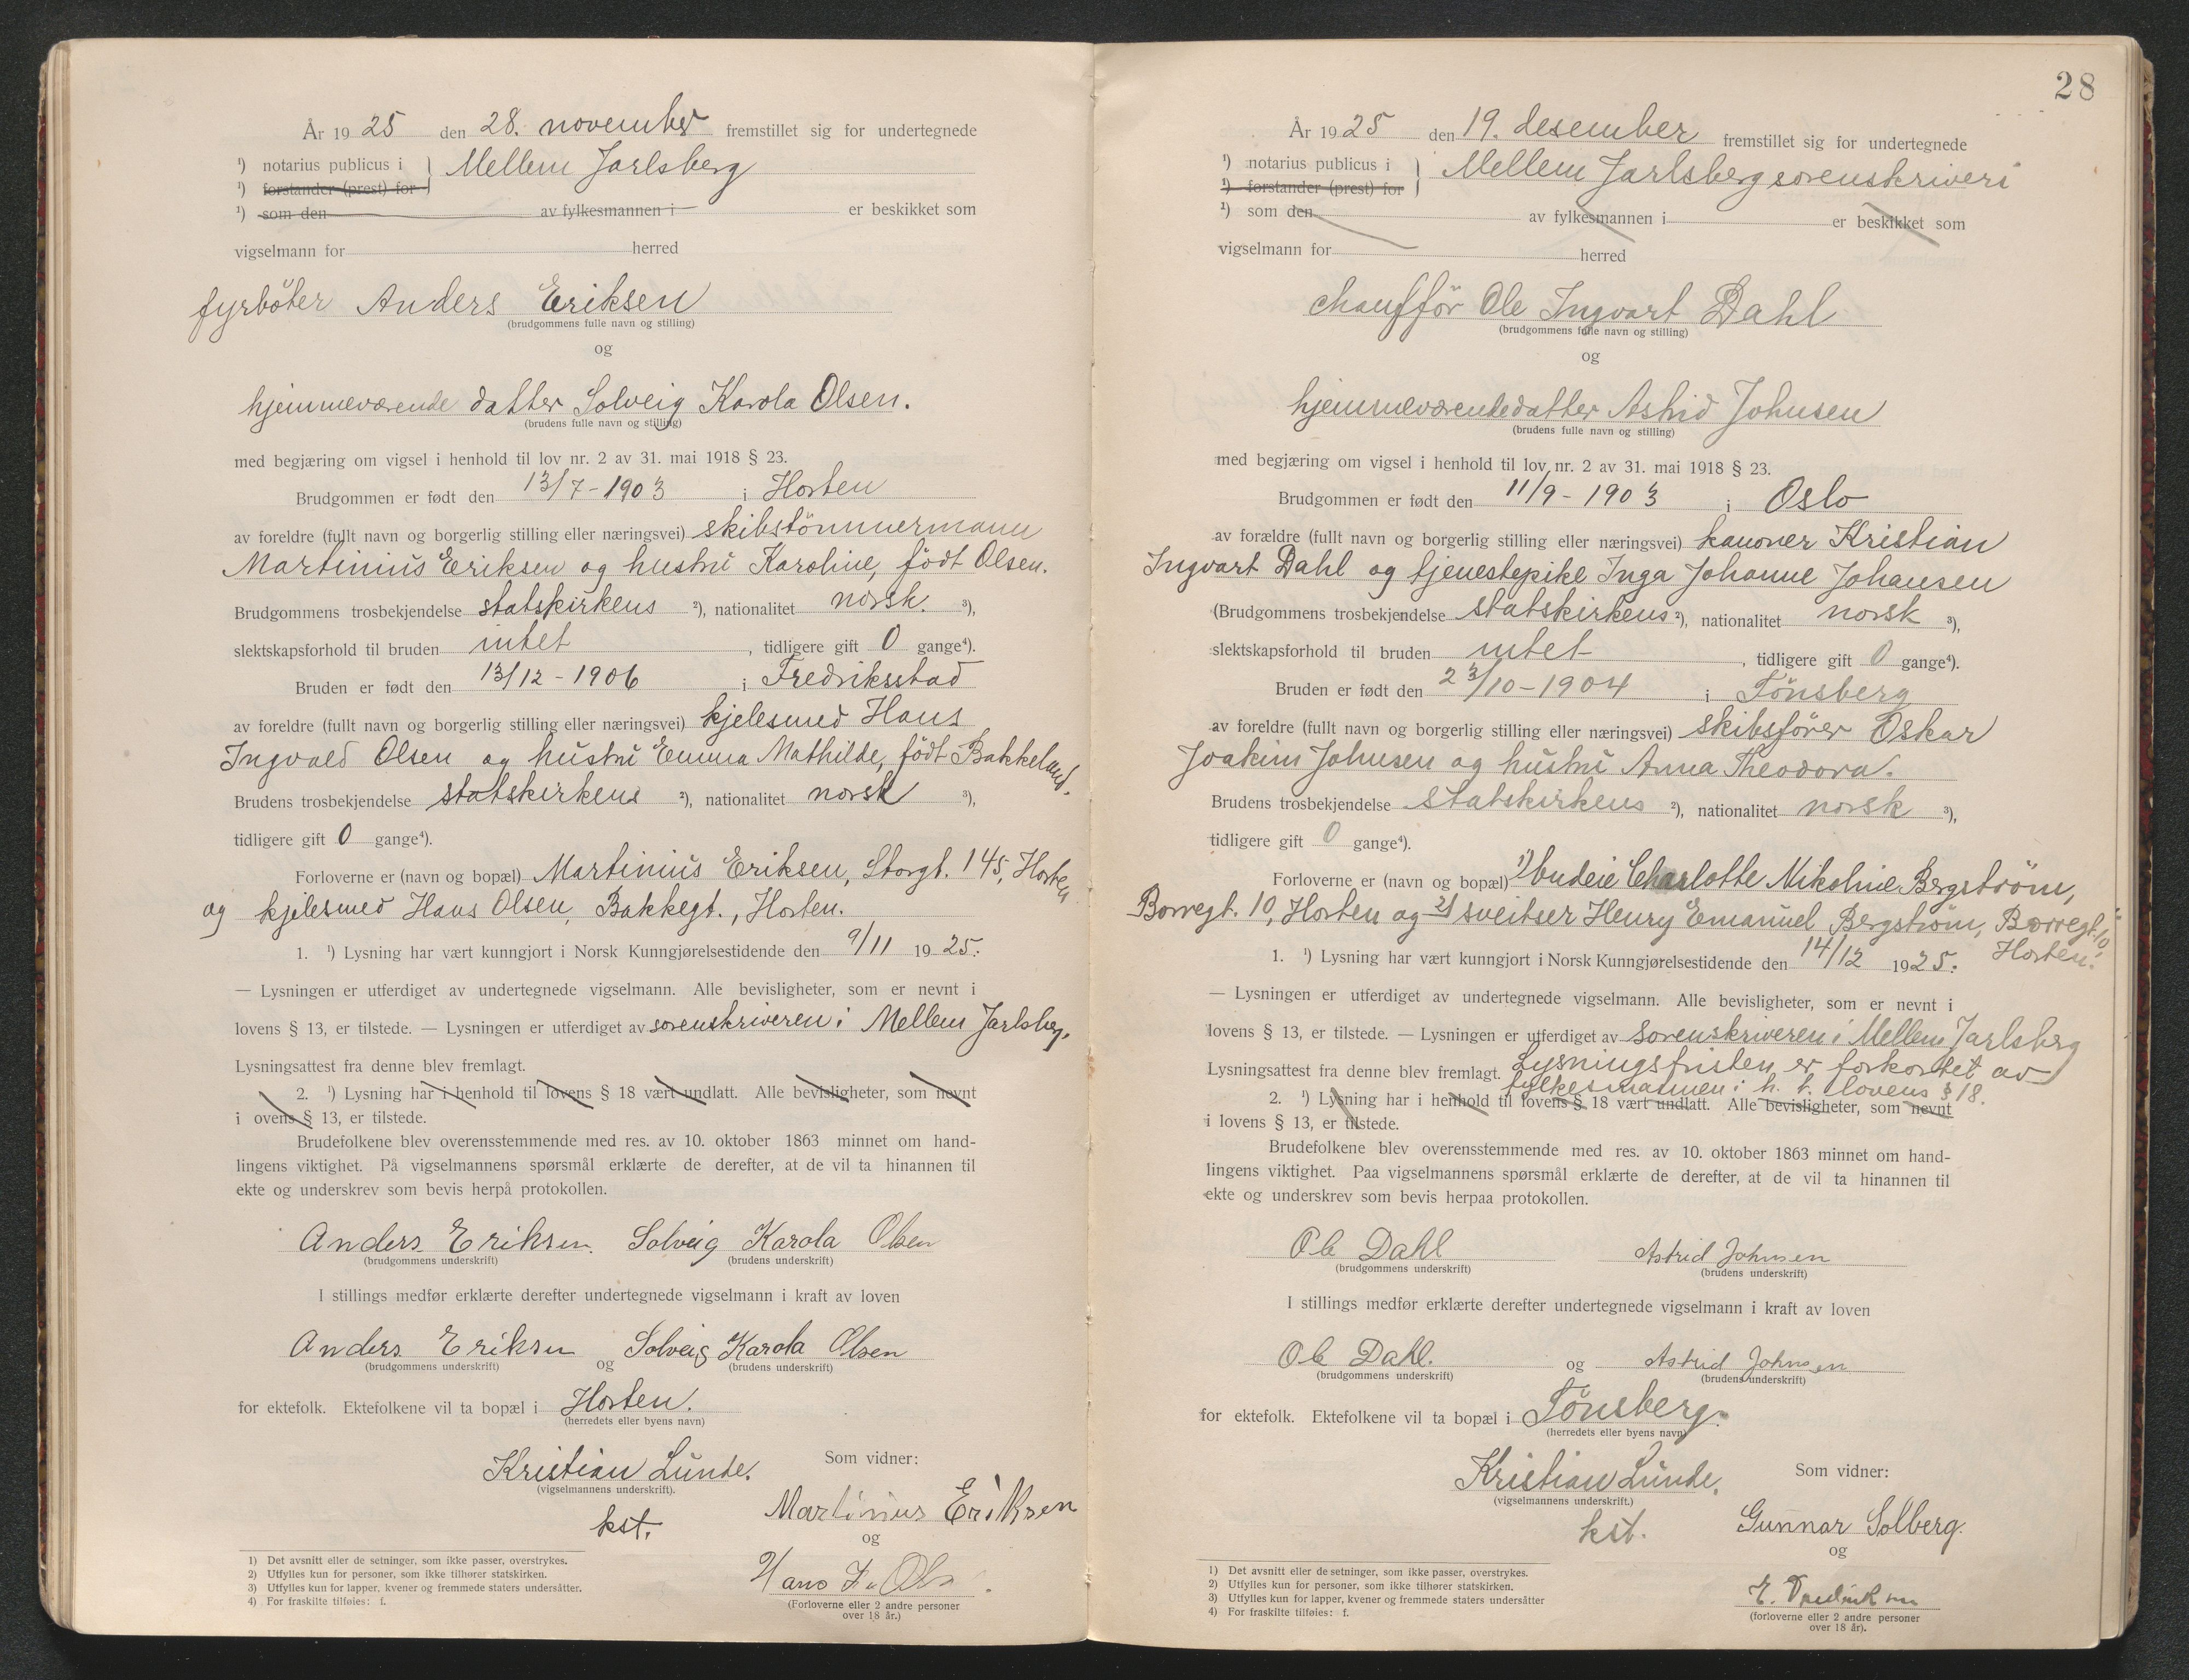 År 1925 den 28. november fremstillet sig for undertegnede
¹) notarius publicus i } Mellem Jarlsberg
¹) forstander (prest) for
¹) som den av fylkesmannen i er beskikket som
vigselmann for herred
fyrböter Anders Eriksen
(brudgommens fulle navn og stilling)
og
hjemmeværende datter Solveig Karola Olsen.
(brudens fulle navn og stilling)
med begjæring om vigsel i henhold til lov nr. 2 av 31. mai 1918 § 23.
Brudgommen er født den 13/7-1903 i Horten
av foreldre (fullt navn og borgerlig stilling eller næringsvei) skibstömmermann
Martinius Eriksen og hustru Karoline, födt Olsen.
Brudgommens trosbekjendelse statskirkens ²), nationalitet norsk. ³),
slektskapsforhold til bruden intet, tidligere gift 0 gange⁴).
Bruden er født den 13/12-1906 i Fredriksstad
av foreldre (fullt navn og borgerlig stilling eller næringsvei) kjelesmed Hans
Ingvald Olsen og hustru Emma Mathilde, födt Bakkeland.
Brudens trosbekjendelse statskirkens ²), nationalitet norsk ³),
tidligere gift 0 gange⁴).
Forloverne er (navn og bopæl) Martinius Eriksen, Storgt. 145, Horten
og kjelesmed Hans Olsen, Bakkegt., Horten.
1. ¹) Lysning har vært kunngjort i Norsk Kunngjørelsestidende den 9/11 1925.
— Lysningen er utferdiget av undertegnede vigselmann. Alle bevisligheter, som er nevnt i
lovens § 13, er tilstede. — Lysningen er utferdiget av sorenskriveren i Mellem Jarlsberg.
Lysningsattest fra denne blev fremlagt.
2. ¹) Lysning har i henhold til lovens § 18 vært undlatt. Alle bevisligheter, som nevnt
i ovens § 13, er tilstede.
Brudefolkene blev overensstemmende med res. av 10. oktober 1863 minnet om hand-
lingens viktighet. På vigselmannens spørsmål erklærte de derefter, at de vil ta hinannen til
ekte og underskrev som bevis herpå protokollen.
Anders Eriksen. Solveig Karola Olsen
(brudgommens underskrift) (brudens underskrift)
I stillings medfør erklærte derefter undertegnede vigselmann i kraft av loven
Anders Eriksen og Solveig Karola Olsen
(brudgommens underskrift) (brudens underskrift)
for ektefolk. Ektefolkene vil ta bopæl i Horten.
(herredets eller byens navn)
Kristian Lunde. Som vidner:
(vigselmannens underskrift).
kst. Martinius Eriksen
og
Hans I. Olsen
(Forloverne eller 2 andre personer
over 18 år.)
1) Det avsnitt eller de setninger, som ikke passer, overstrykes.
2) Utfylles kun for personer, som ikke tilhører statskirken.
3) Utfylles kun for lapper, kvener og fremmede staters undersåtter.
4) For fraskilte tilføies: f.
28
År 1925 den 19. desember fremstillet sig for undertegnede
¹) notarius publicus i } Mellem Jarlsberg sorenskriveri
¹) forstander (prest) for
¹) som den av fylkesmannen i er beskikket som
vigselmann for herred
chafför Ole Ingvart Dahl
(brudgommens fulle navn og stilling)
og
hjemmeværendedatter Astrid Johnsen
(brudens fulle navn og stilling)
med begjæring om vigsel i henhold til lov nr. 2 av 31. mai 1918 § 23.
Brudgommen er født den 11/9-1903 i Oslo
av forældre (fullt navn og borgerlig stilling eller næringsvei) kanoner Kristian
Ingvart Dahl og tjenestepike Inga Johanne Johansen
(Brudgommens trosbekjendelse statskirkens ²), nationalitet norsk ³),
slektskapsforhold til bruden intet, tidligere gift 0 gange⁴).
Bruden er født den 23/10-1904 i Tönsberg
av foreldre (fullt navn og borgerlig stilling eller næringsvei) skibsförer Oskar
Joakim Johnsen og hustru Anna Theodora.
Brudens trosbekjendelse statskirkens ²), nationalitet norsk ³),
tidligere gift 0 gange⁴).
Forloverne er (navn og bopæl) 1) budeie Charlotte Nikoline Bergström,
Borregt. 10, Horten og 2) sveitser Henry Emanuel Bergström, Borregt. 10,
Horten.
1. ¹) Lysning har vært kunngjort i Norsk Kunngjørelsestidende den 14/12 1925.
— Lysningen er utferdiget av undertegnede vigselmann. Alle bevisligheter, som er nevnt i
lovens § 13, er tilstede. — Lysningen er utferdiget av sorenskriveren i Mellem Jarlsberg
Lysningsattest fra denne blev fremlagt. Lysningsfristen er forkortet av
fylkesmannen i h. t. lovens § 18.
2. ¹) Lysning har i henhold til lovens § 18 vært undlatt. Alle bevisligheter, som nevnt
i lovens § 13, er tilstede.
Brudefolkene blev overensstemmende med res. av 10. oktober 1863 minnet om hand-
lingens viktighet. Paa vigselmannens spørsmål erklærte de derefter, at de vil ta hinannen til
ekte og underskrev som bevis herpaa protokollen.
Ole Dahl Astrid Johnsen
(brudgommens underskrift) (brudens underskrift)
I stillings medfør erklærte derefter undertegnede vigselmann i kraft av loven
Ole Dahl. og Astrid Johnsen
(brudgommens underskrift) (brudens underskrift)
for ektefolk. Ektefolkene vil ta bopæl i Tönsberg.
(herredets eller byens navn)
Kristian Lunde. Som vidner:
(vigselmannens underskrift.)
kst. Gunnar Solberg.
og
E. Fredriksen
(forloverne eller 2 andre personer
over 18 år).
1) Det avsnitt eller de setninger, som ikke passer, overstrykes.
2) Utfylles kun for personer, som ikke tilhører statskirken.
3) Utfylles kun for lapper, kvener og fremmede staters undersåtter
4) For fraskilte tilføies: f.